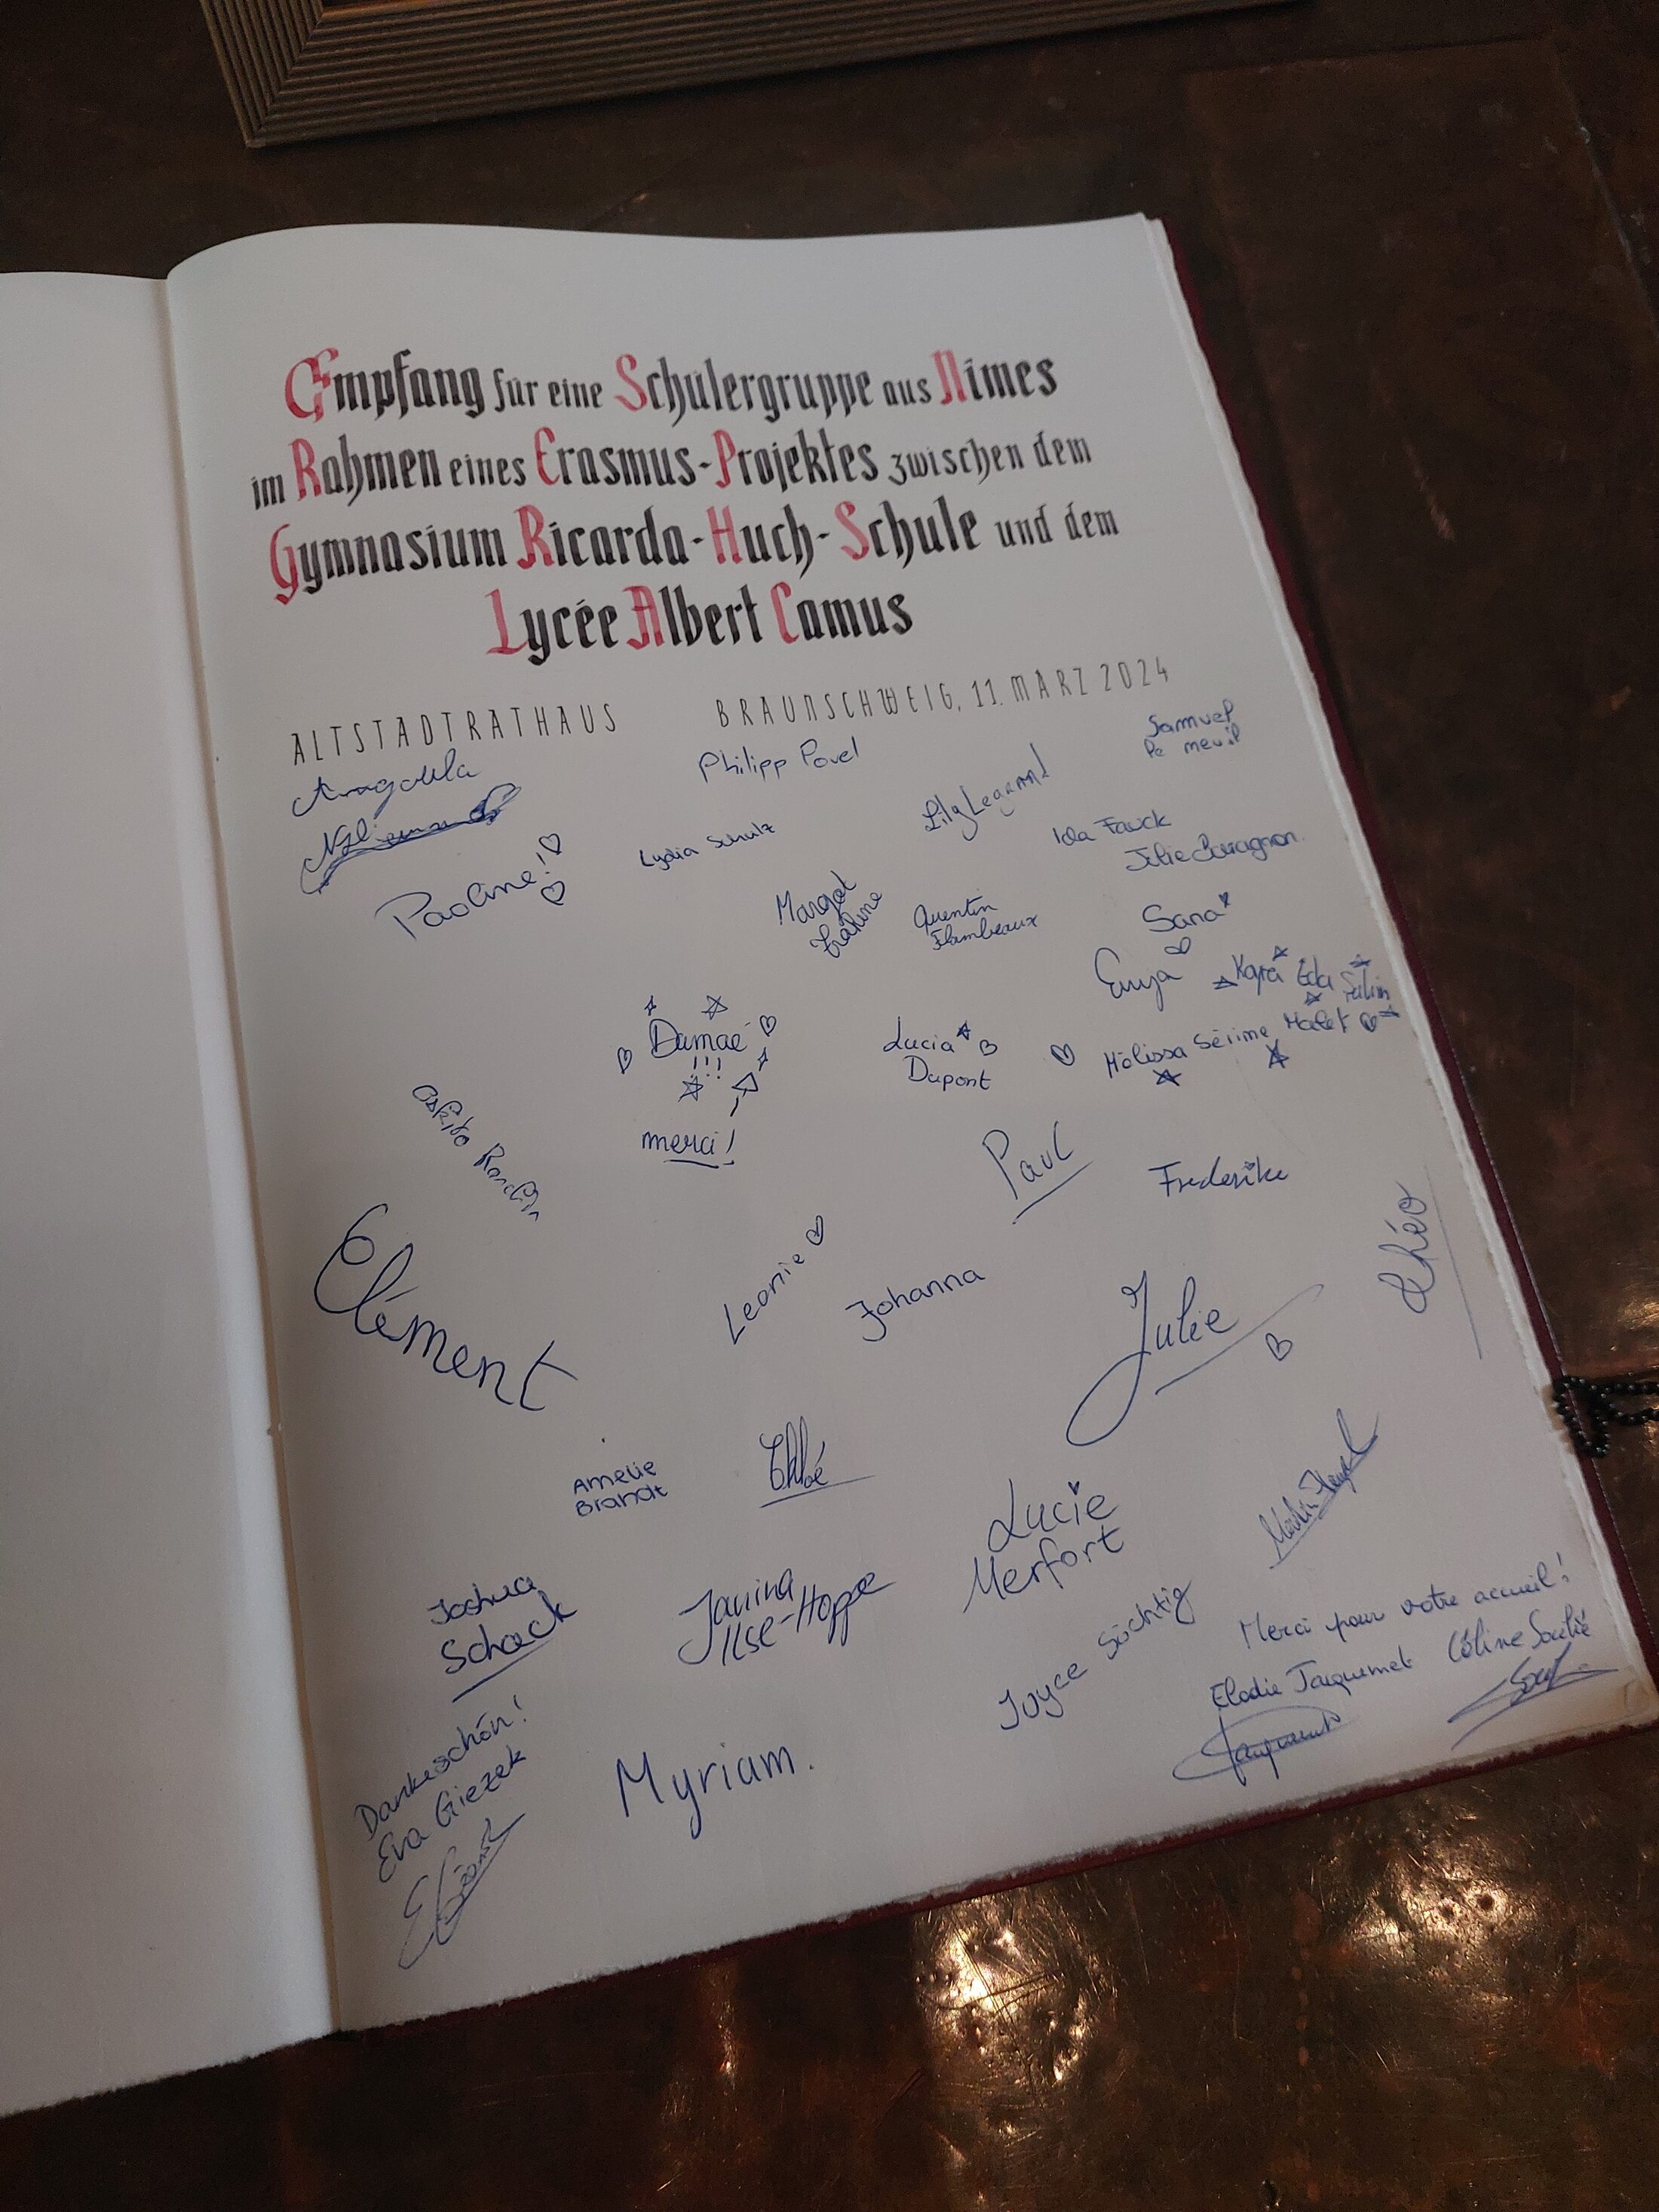 Empfang für eine Schülergruppe aus Nîmes
im Rahmen eines Erasmus-Projektes zwischen dem
Gymnasium Ricarda-Huch-Schule und dem
Lycée Albert Camus
ALTSTADTRATHAUS BRAUNSCHWEIG, 11. MÄRZ 2024
Samuel
Philipp
Lily Legrand
Lydia Schulz
Ida Fauck
Julie
Paoline!
Margot
Quentin
Flambeaux
Sana
Enya
Kaya Eda Selin
Damaé
!!!
merci!
Lucia
Dupont
Mélissa Sérine Malek
Paul
Frederike
Clément
Leonie
Johanna
Julie
Théo
Amelie
Brandt
Chloé
Lucie
Merfort
Joshua
Schack
Janina
Ilse-Hoppe
Joyce Söchtig
Merci pour votre accueil!
Elodie Jacquemet Céline Soulié
Dankeschön!
Eva Giezek
Myriam.